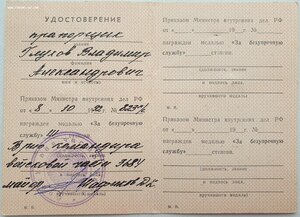 УДОСТОВЕРЕНИЕ
прапорщик
звание
Глухов Владимир
фамилия
Александрович
Приказом Министра внутренних дел РФ
от « 8 » 10 19
награжден медалью «За безупречную
службу» III степени.
Врио командира
войсковой части
майор
вручившего медаль
М. П.
Приказом Министра внутренних дел РФ
от « » 19 г. №
награжден медалью «За безупречную
службу» степени.
Должность, звание
и подпись лица,
вручившего медаль
М. П.
Приказом Министра внутренних дел РФ
от « » 19 г. №
награжден медалью «За безупречную
службу» степени.
Должность, звание
и подпись лица,
вручившего медаль
М. П.